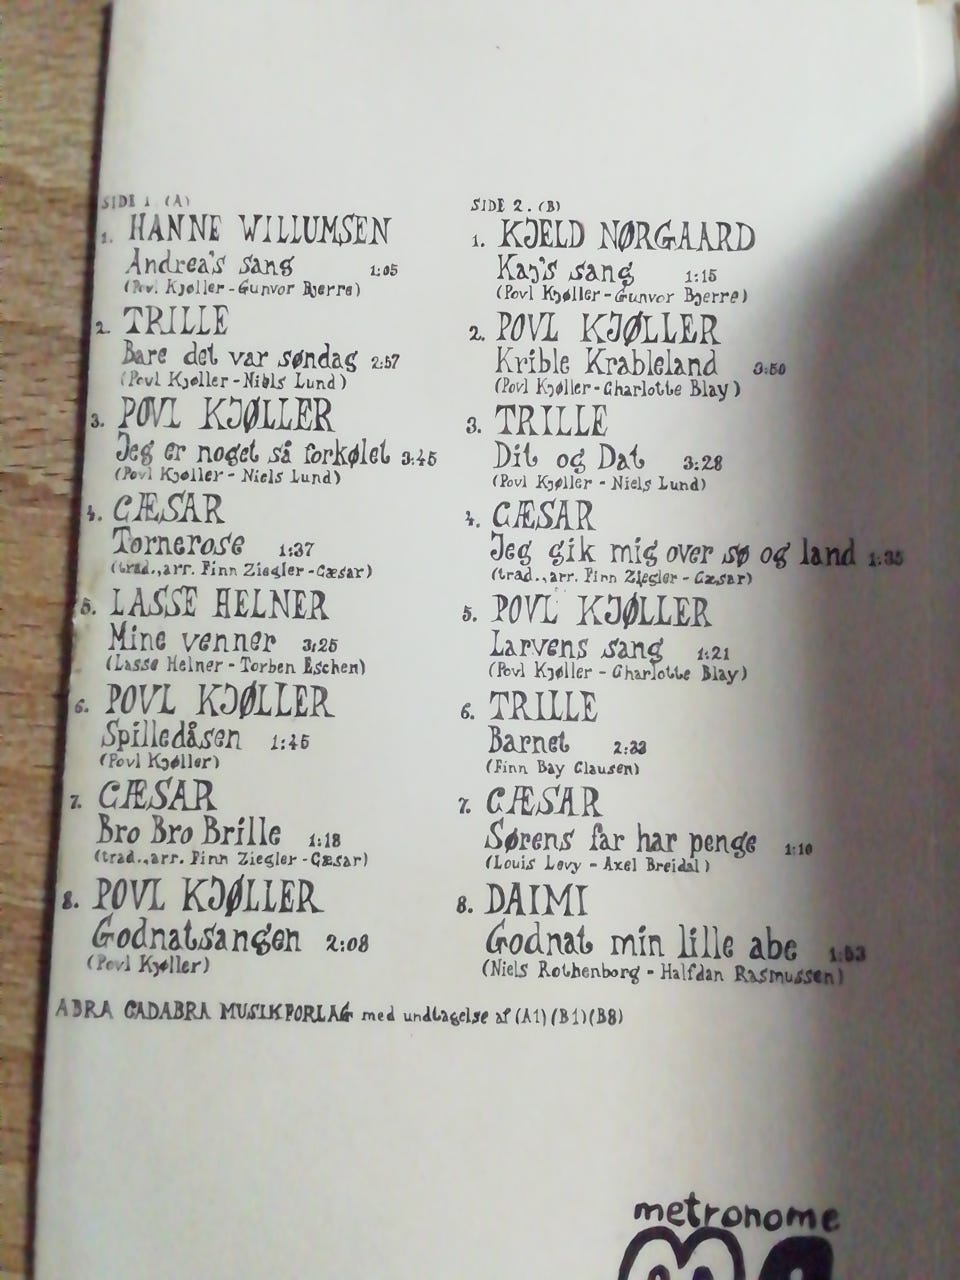 SIDE 1. (A)
1. HANNE WILLUMSEN
Andrea's sang 1:05
(Povl Kjøller - Gunvor Bjerre)
2. TRILLE
Bare det var søndag 2:57
(Povl Kjøller - Niels Lund)
3. POVL KJØLLER
Jeg er noget så forkølet 3:45
(Povl Kjøller - Niels Lund)
4. CÆSAR
Tornerose 1:37
(trad., arr. Finn Ziegler - Cæsar)
5. LASSE HELNER
Mine venner 3:25
(Lasse Helner - Torben Eschen)
6. POVL KJØLLER
Spilledåsen 1:45
(Povl Kjøller)
7. CÆSAR
Bro Bro Brille 1:18
(trad., arr. Finn Ziegler - Cæsar)
8. POVL KJØLLER
Godnatsangen 2:08
(Povl Kjøller)
SIDE 2. (B)
1. KJELD NØRGAARD
Kaj's sang 1:15
(Povl Kjøller - Gunvor Bjerre)
2. POVL KJØLLER
Krible Krableland 3:50
(Povl Kjøller - Charlotte Blay)
3. TRILLE
Dit og Dat 3:28
(Povl Kjøller - Niels Lund)
4. CÆSAR
Jeg gik mig over sø og land 1:35
(trad., arr. Finn Ziegler - Cæsar)
5. POVL KJØLLER
Larvens sang 1:21
(Povl Kjøller - Charlotte Blay)
6. TRILLE
Barnet 2:33
(Finn Bay Clausen)
7. CÆSAR
Sørens far har penge 1:10
(Louis Levy - Axel Breidal)
8. DAIMI
Godnat min lille abe 1:53
(Niels Rothenborg - Halfdan Rasmussen)
ABRA CADABRA MUSIKFORLAG med undtagelse af (A1) (B1) (B8)
metronome